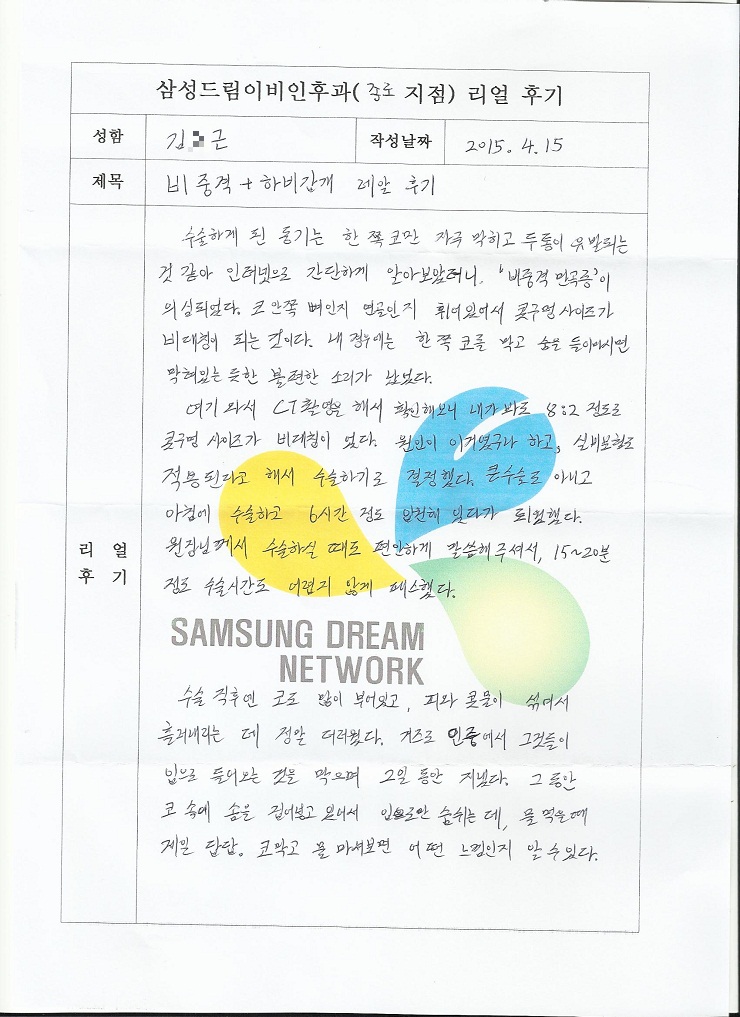 삼성드림이비인후과( 종로 지점) 리얼 후기
성함 김 근 작성날짜 2015. 4. 15
제목 비중격 + 하비갑개 레알 후기
리 얼
후 기
수술하게 된 동기는 한 쪽 코만 자꾸 막히고 두통이 유발되는
것 같아 인터넷으로 간단하게 알아보았더니, '비중격 만곡증'이
의심되었다. 코 안쪽 뼈인지 연골인지 휘어있어서 콧구멍 사이즈가
비대칭이 되는 것이다. 내 경우에는 한 쪽 코를 막고 숨을 들이마시면
막혀있는 듯한 불편한 소리가 났었다.
여기 와서 CT촬영을 해서 확인해보니 내가 봐도 8:2 정도로
콧구멍 사이즈가 비대칭이 었다. 원인이 이거였구나 하고, 실비보험도
적용된다고 해서 수술하기로 결정했다. 큰수술도 아니고
아침에 수술하고 6시간 정도 입원해 있다가 퇴원했다.
원장님께서 수술하실 때도 편안하게 말씀해주셔서, 15~20분
정도 수술시간도 어렵지 않게 패스했다.
SAMSUNG DREAM
NETWORK
수술 직후엔 코로 많이 부어있고, 피와 콧물이 섞여서
흘러내리는 데 정말 더러웠다. 거즈로 인중에서 그것들이
입으로 들어오는 것을 막으며 2일 동안 지냈다. 그 동안
코 속에 솜을 집어넣고 있어서 입으로만 숨쉬는 데, 물 먹을때
제일 답답. 코막고 물 마셔보면 어떤 느낌인지 알 수 있다.